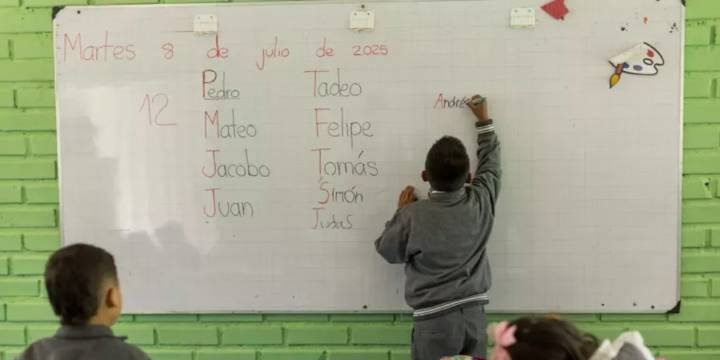 Martes 8 de julio de 2025
12
Pedro
Mateo
Jacobo
Juan
Tadeo
Felipe
Tomás
Simón
Judas
Andrés